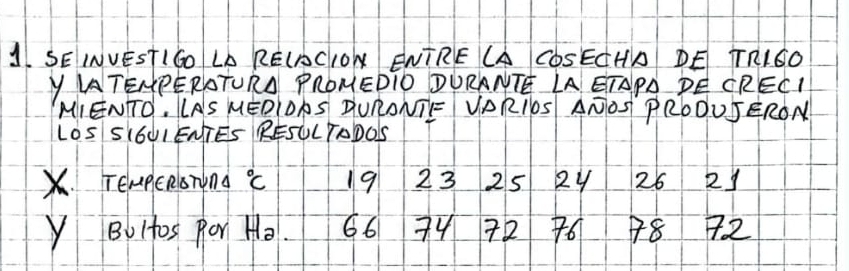 1. SE INVESTIGO LA RELACION ENTRE LA COSECHA DE TRIGO
Y LA TEMPERATURA PROMEDIO DURANTE LA ETAPA DE CRECI
MIENTO. LAS MEDIDAS DURANTE VARIOS AÑOS PRODUJERON
LOS SIGUIENTES RESULTADOS
X TEMPERATURA °C 19 23 25 24 26 21
Y Bultos por Ha. 66 74 72 76 78 72